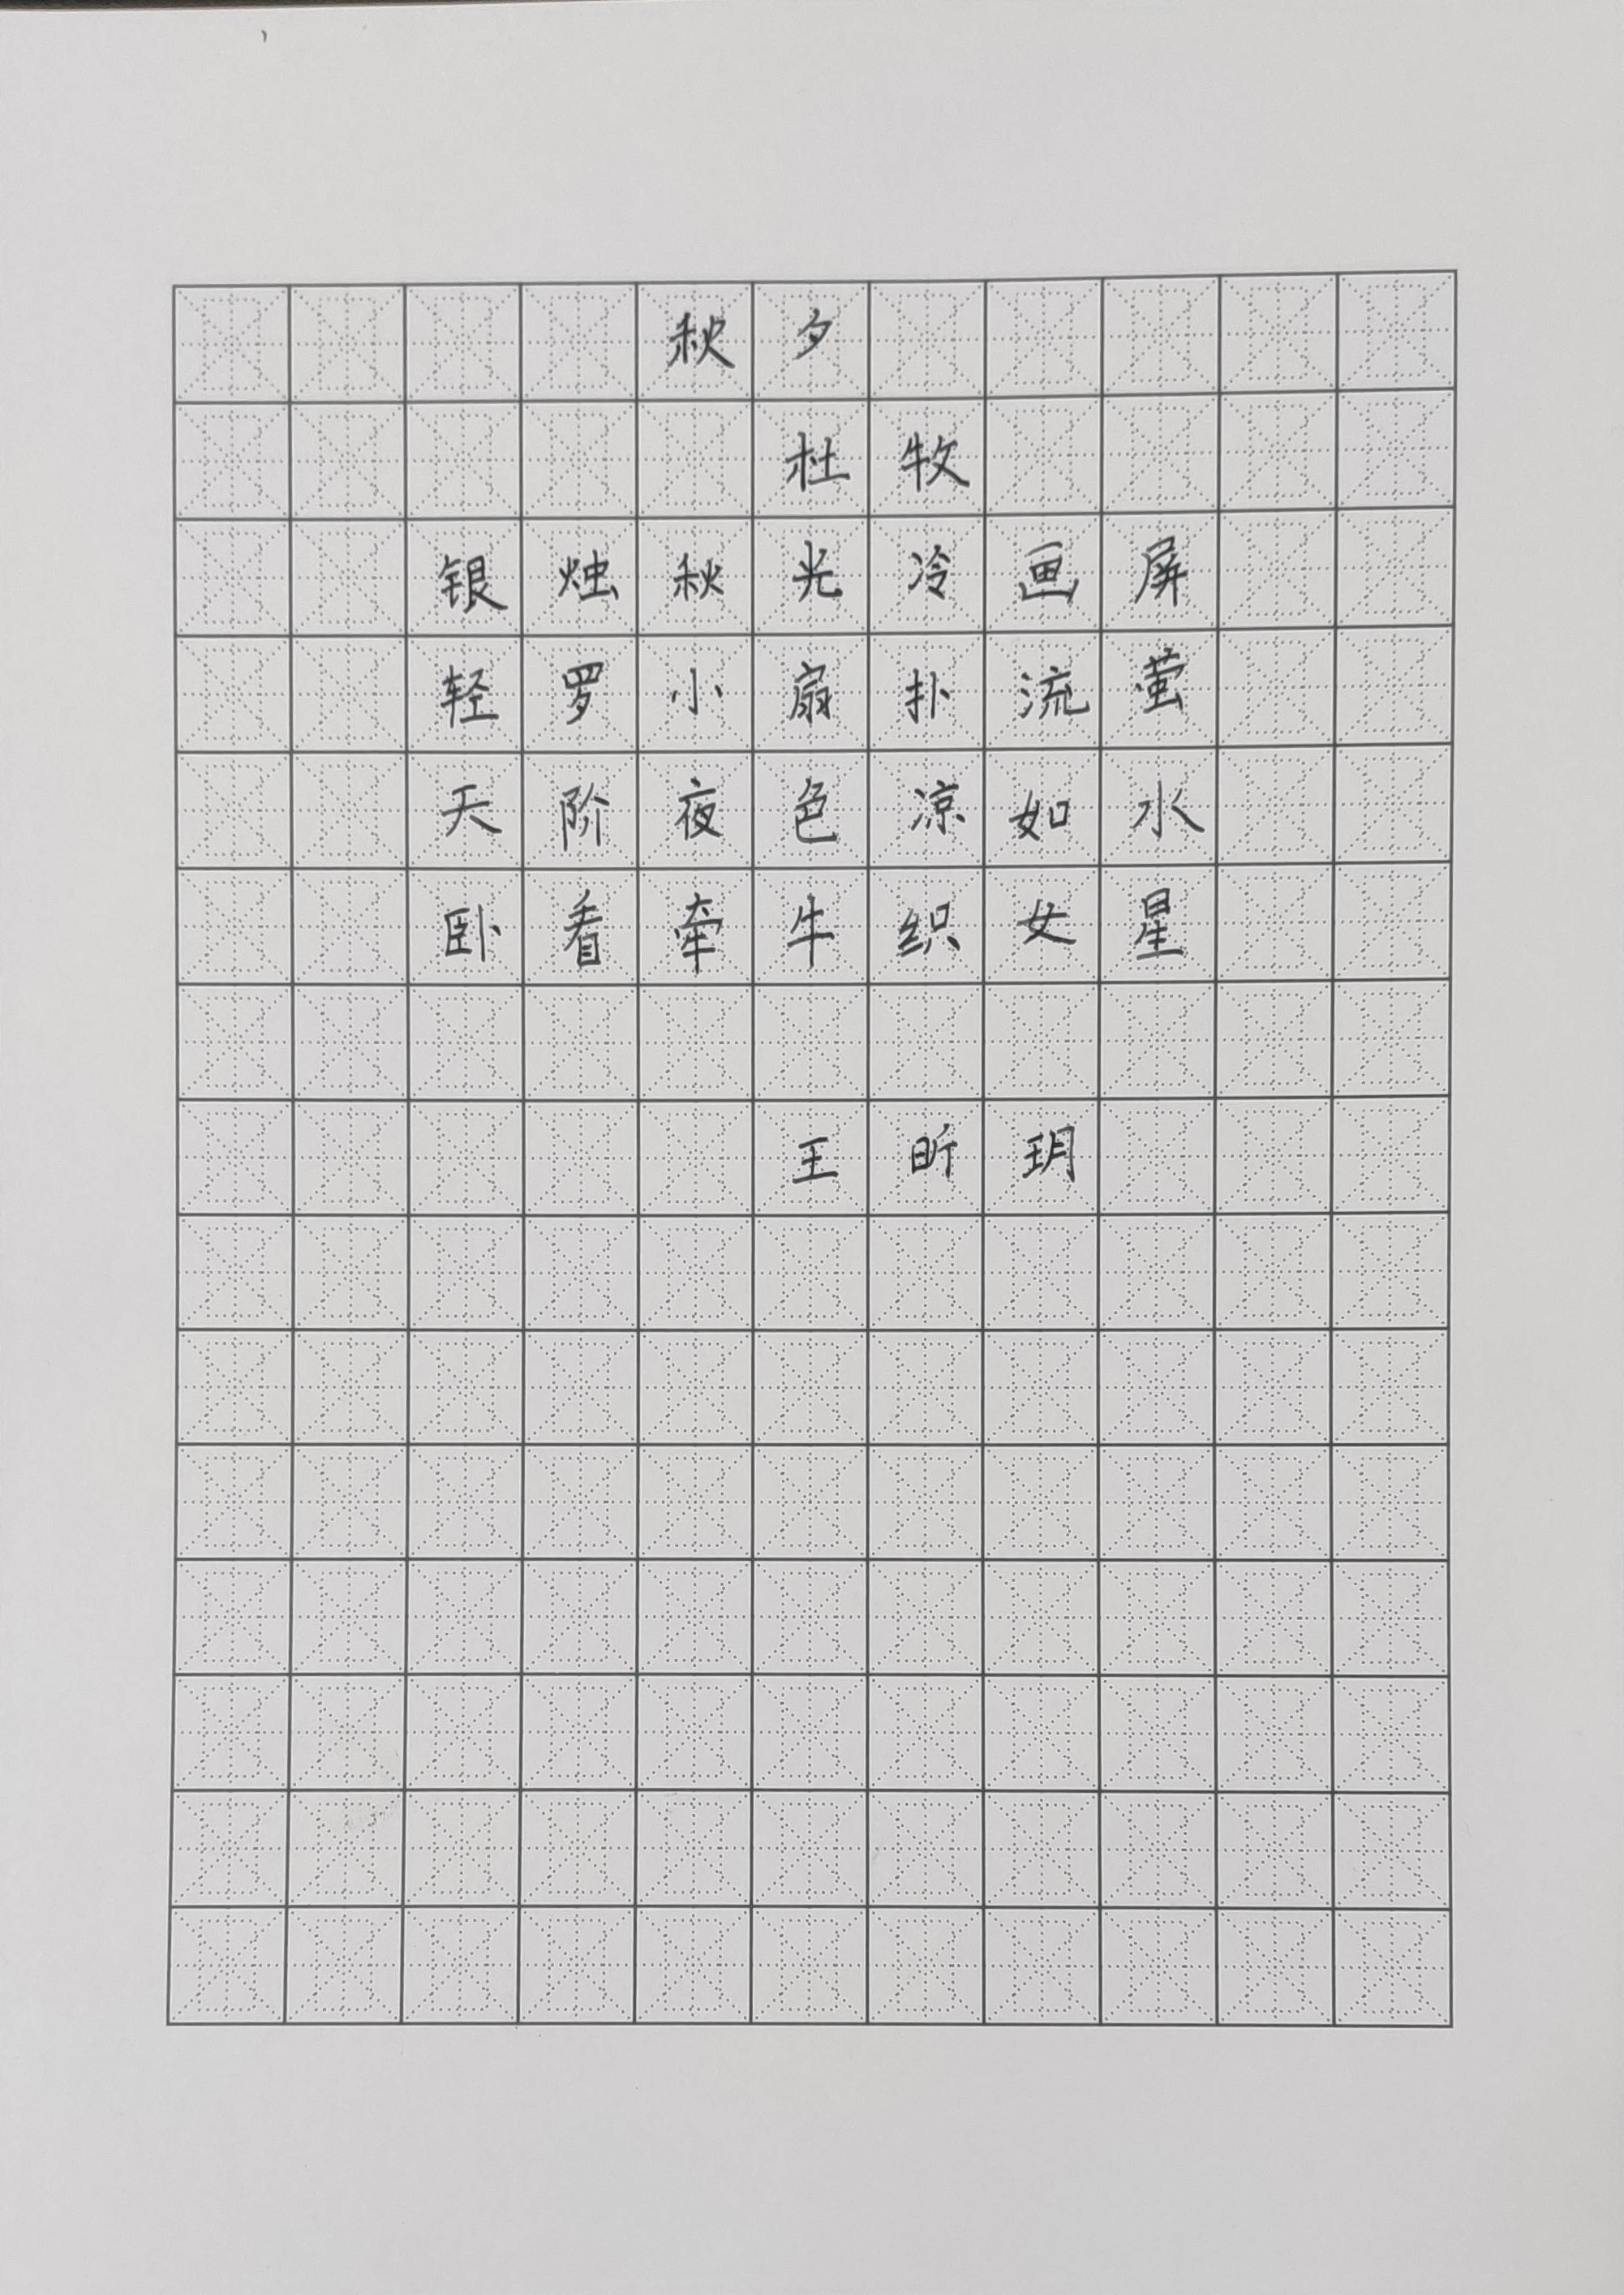 秋夕
杜牧
银烛秋光冷画屏
轻罗小扇扑流萤
天阶夜色凉如水
卧看牵牛织女星
王昕玥